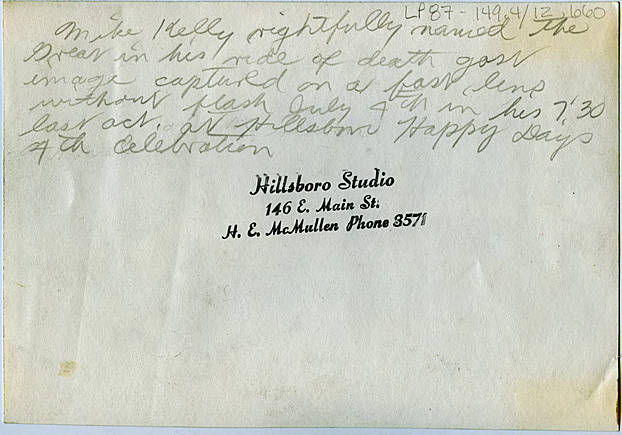 LP87-149.4/12.660
Mike Kelly rightfully named the
Great in his ride of death gost
image captured on a fast lens
without flash July 4th in his 7'30
last act, at Hillsboro Happy Days
4th celebration
Hillsboro Studio
146 E. Main St.
H. E. McMullen Phone 3571